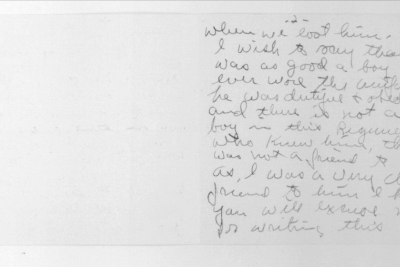 -2-
when we lost him.
I wish to say tha
was as good a boy
ever wore the
he was dutiful & obed
and there is not a
boy in this Regim
who knew him, th
was not a friend to
as, I was a very cl
friend to him I h
you will excuse
for writing this